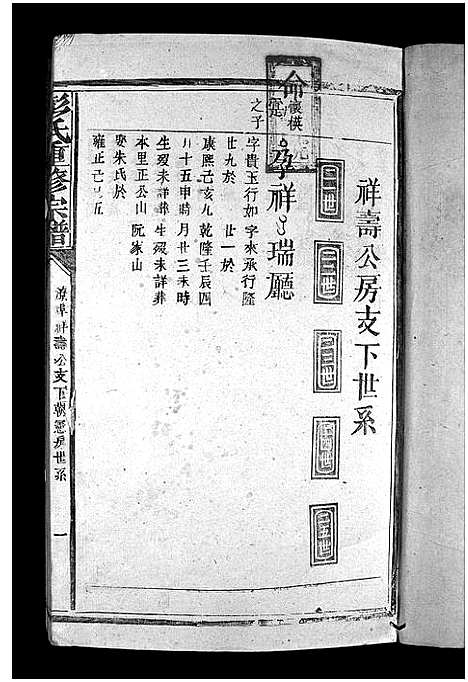 祥壽公房支下世系
二一世
二二世
二三世
二四世
二五世
命
懷模
之子
孕祥
瑞廳
字貴玉行如
廿九於
康熙己亥九
月十五申時
生歿未詳葬
本里正公山
娶朱氏於
雍正己
字來承行隆
廿一於
乾隆壬辰四
月廿三未時
生歿未詳葬
阮家山
彭氏重修宗譜
祥壽公支下朝憲房世系
一